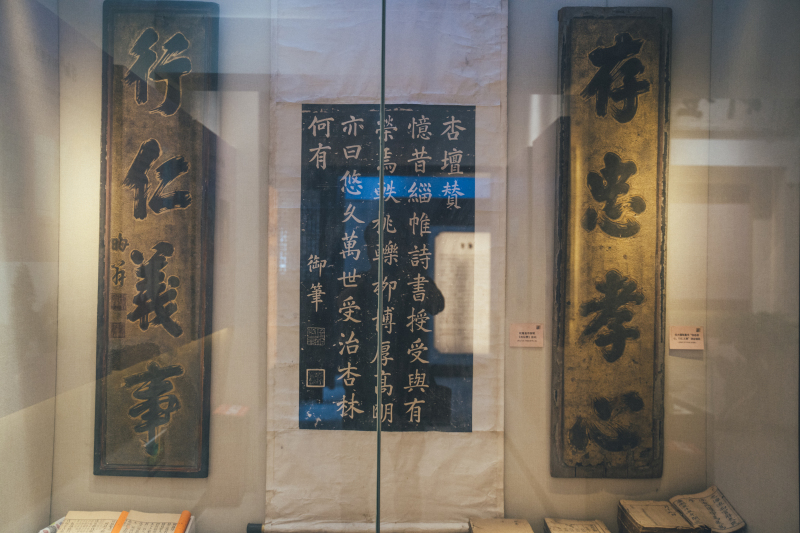 存忠孝心
杏壇賛
憶昔緇帷詩書授受與有
榮焉軼桃轢柳博厚高明
亦曰悠久萬世受治杏林
何有 御筆
行仁義事
晦翁